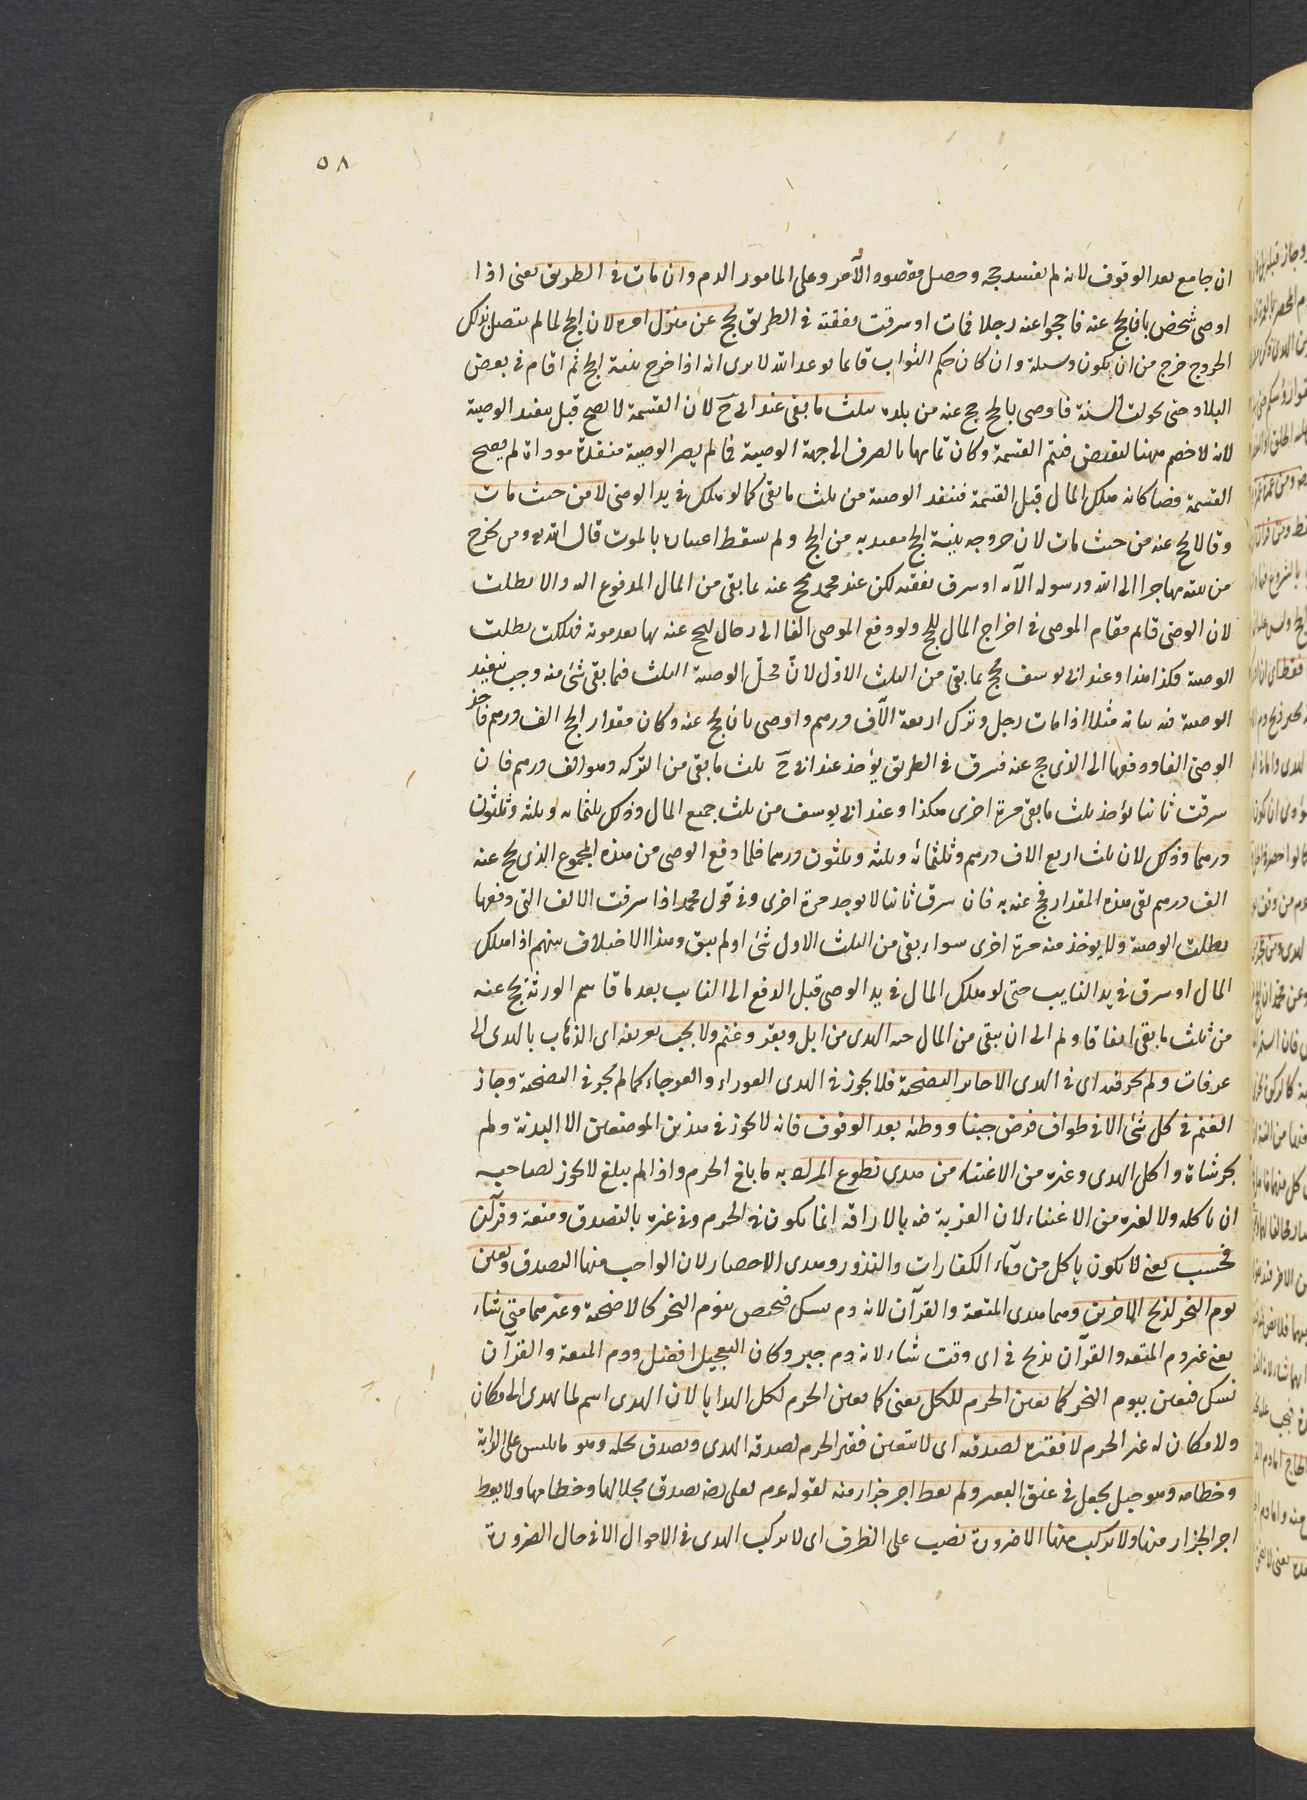 ٥٨
ان جامع بعد الوقوف لانه لم يفسد حجه وحصل مقصوده الآمر وعلى المامور الدم وان مات فى الطريق يعنى اذا
اوصى شخص بان يحج عنه فاحجوا عنه رجلا فمات او سرقت نفقته فى الطريق يحج عن منزل امره لان الحج لما لم يتصل بذلك
الخروج خرج من ان يكون وسيلة وان كان حكم الثواب قائما بوعد الله لا يرى انه اذا خرج بنية الحج ثم اقام فى بعض
البلاد حتى تحولت السنة فاوصى بالحج يحج عنه من بلده بثلث ما بقى عند ابى ح لان القسمة لا يصح قبل تنفيذ الوصية
لانه لا خصم ههنا ليقبض فيتم القسمة وكان تمامها بالصرف الى جهة الوصية فما لم يصر الوصية منفذة موداة لم يصح
القسمة فصار كانه هلك المال قبل القسمة فينفذ الوصية من ثلث ما بقى كما لو هلك فى يد الوصى لا من حيث مات
وقالا يحج عنه من حيث مات لان خروجه بنية الحج معتد به من الحج ولم يسقط اعتباره بالموت قال الله ومن يخرج
من بيته مهاجرا الى الله ورسوله الآية او سرق نفقته لكن عند محمد يحج عنه بما بقى من المال المدفوع اليه والا بطلت
لان الوصى قائم مقام الموصى فى اخراج المال للحج ولو دفع الموصى الفا الى رجال ليحج عنه بها بعد موته فهلكت بطلت
الوصية فكذا هذا وعند ابى يوسف يحج بما بقى من الثلث الاول لان محل الوصية الثلث فما بقى شئ منه وجب تنفيذ
الوصية فيه بيانه مثلا اذا مات رجل وترك اربعة الآف درهم واوصى بان يحج عنه وكان مقدار الحج الف درهم فاخذ
الوصى الفا ودفعها الى الذى حج عنه فسرق فى الطريق يؤخذ عند ابى ح ثلث ما بقى من التركه وهو الف درهم فان
سرقت ثانيا يؤخذ ثلث ما بقى مرة اخرى هكذا وعند ابى يوسف من ثلث جميع المال وذلك ثلثمائه وثلثه وثلثون
درهما وذلك لان ثلث اربع الاف درهم وثلثمائة وثلثة وثلثون درهما فلما دفع الوصى من هذه المجموع الذى يحج عنه
الف درهم بقى هذه المقدار فيحج عنه به فان سرق ثانيا لا يوجد مرة اخرى وفى قول محمد اذا سرقت الالف التى دفعها
بطلت الوصية ولا يوخذ منه مرة اخرى سواء بقى من الثلث الاول شئ او لم يبق وهذا الاختلاف بينهم اذا هلك
المال او سرق فى يد النايب حتى لو هلك المال فى يد الوصى قبل الدفع الى النايب بعد ما قاسم الورثة يحج عنه
من ثلث ما بقى اتفاقا ولم الى ان يبقى من المال حبه الهدى من ابل وبقر وغنم ولا يجب تعريفه اى الذهاب بالهدى الى
عرفات ولم يجز فيه اى فى الهدى الا جائز التضحية فلا يجوز فى الهدى العوراء والعرجاء كما لم يجز فى التضحية وجاز
الغنم فى كل شئ الا فى طواف فرض جنبا ووطئه بعد الوقوف فانه لا يجوز فى هذين الموضعين الا البدنة ولم
يجز شاة واكل الهدى وغيره من الاغنياء من هدى تطوع المراد به ما بلغ الحرم واذا لم يبلغ لا يجوز لصاحبه
ان ياكله ولا لغيره من الاغنياء لان القربة فيه بالاراقة انما يكون فى الحرم وفى غيره بالتصدق ومتعة وقرآن
فحسب يعنى لا يكون ياكل من دماء الكفارات والنذور وهدى الاحصار لان الواجب منها التصدق وتعين
يوم النحر لذبح الاخرين وهما هدى المتعة والقرآن لانه دم نسك فيختص بيوم النحر كالاضحية وغيرهما متى شاء
يعنى غير دم المتعة والقرآن يذبح فى اى وقت شاء لانه دم جبر وكان التعجيل افضل ودم المتعة والقرآن
نسك فتعين بيوم النحر كما تعين الحرم للكل يعنى كما تعين الحرم لكل الهدايا لان الهدى اسم لما يهدى الى مكان
ولا مكان له غير الحرم لا فقيره لصدقته اى لا يتعين فقير الحرم لصدقة الهدى وتصدق بجله وهو ما يلبس على الدابة
وخطامه وهو حبل يجعل فى عنق البعير ولم يعط اجر جزار منه لقوله عم لعلى رضه تصدق بجلالها وخطامها ولا يعط
اجر الجزار منها ولا يركب منها الا ضرورة نصب على الظرف اى لا يركب الهدى فى الاحوال الا فى حال الضرورة